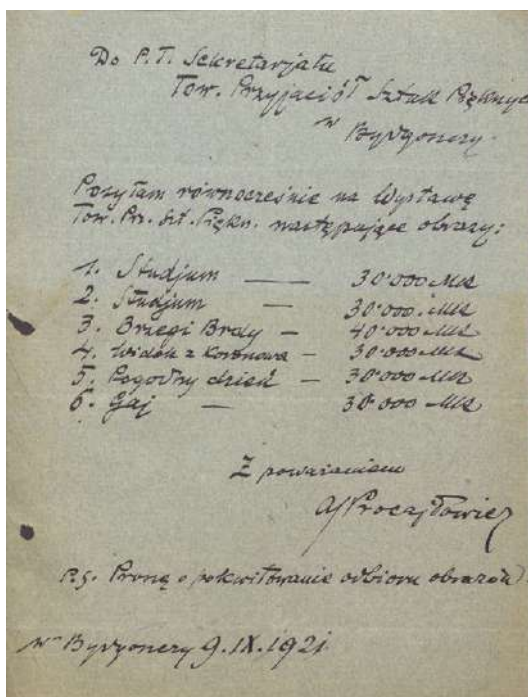 Do P.T. Sekretarjatu
Tow. Przyjaciół Sztuk Pięknych
w
Bydgoszczy.
Posyłam równocześnie na Wystawę
Tow. Prz. Szt. Piękn. następujące obrazy:
1. Studjum — 30·000 Mk
2. Studjum — 30·000 Mk
3. Brzegi Brdy — 40·000 Mk
4. Widok z Koronowa — 30·000 Mk
5. Pogodny dzień — 30·000 Mk
6. Gaj — 30·000 Mk
Z poważaniem
A Procajłowicz
P.S. Proszę o pokwitowanie odbioru obrazów.
w Bydgoszczy 9.IX.1921